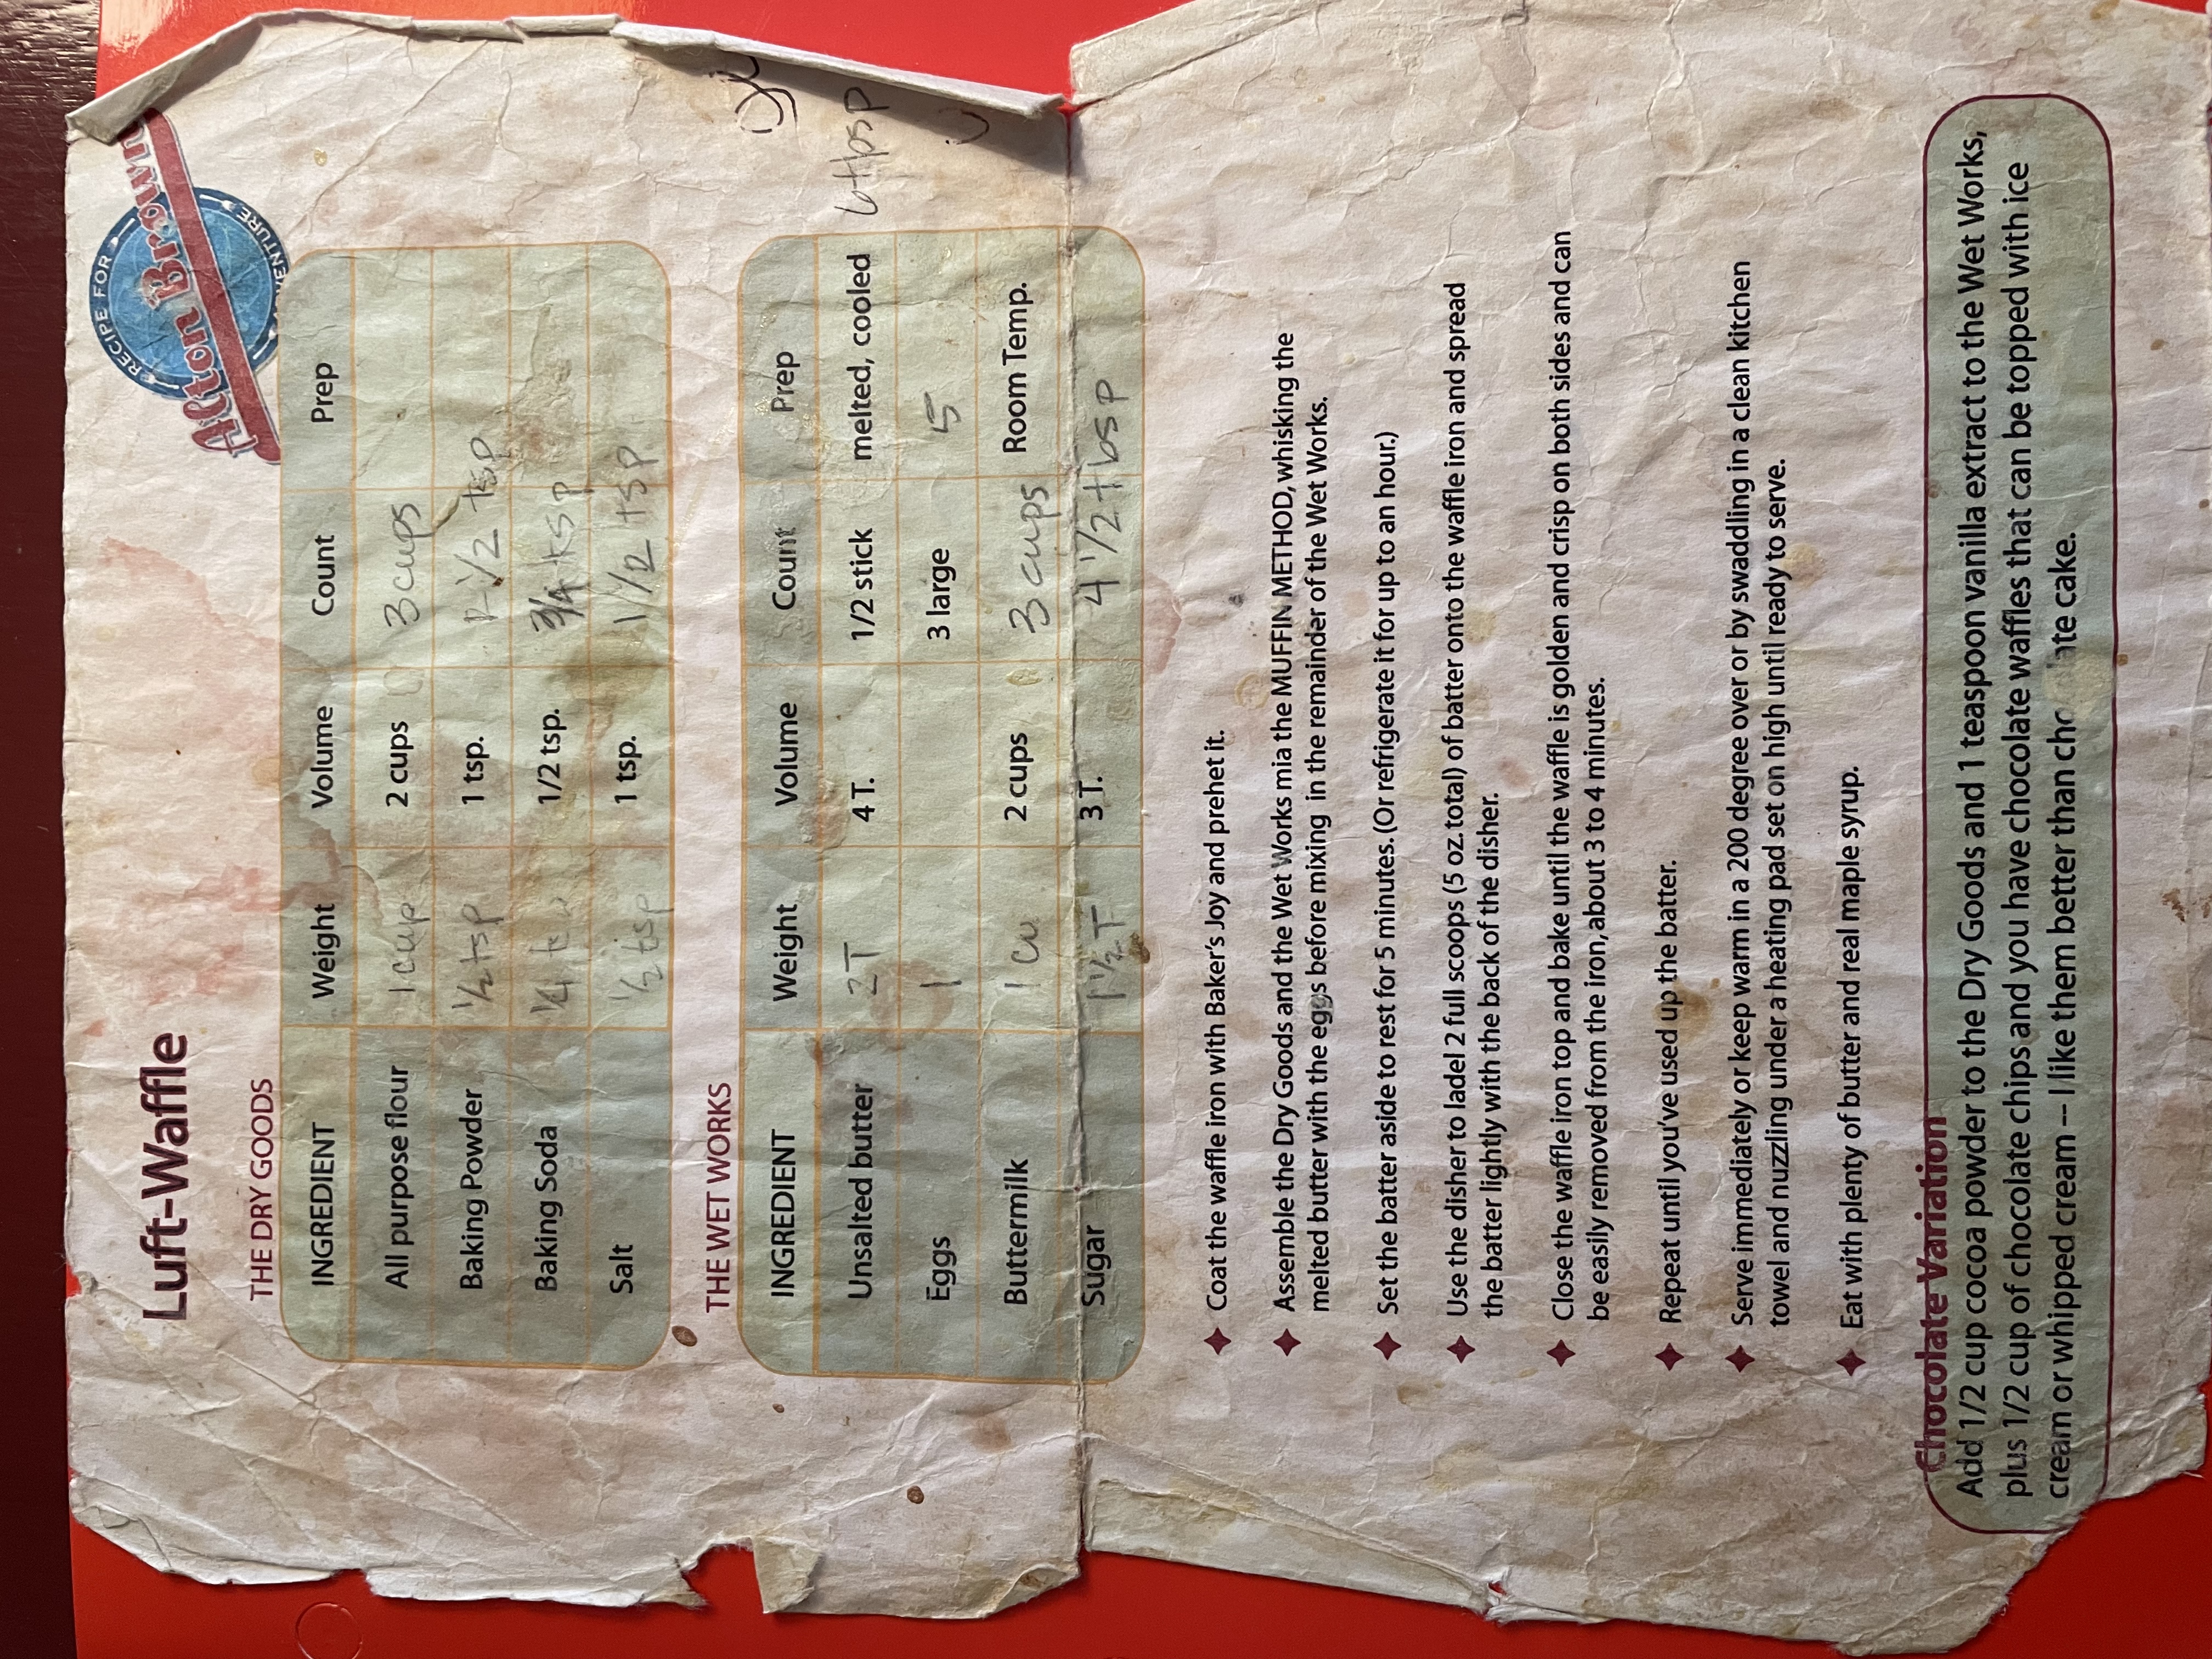 RECIPE FOR
Alton Brown
Luft-Waffle
THE DRY GOODS
INGREDIENT Weight Volume Count Prep
All purpose flour 1 cup 2 cups 3 cups
Baking Powder 1/2 tsp 1 tsp. 1 1/2 tsp
Baking Soda 1/4 1/2 tsp. 3/4 tsp
Salt 1/2 tsp 1 tsp. 1 1/2 tsp
THE WET WORKS
INGREDIENT Weight Volume Count Prep
Unsalted butter 2T 4 T. 1/2 stick melted, cooled 6 tbsp
Eggs 1 3 large 5
Buttermilk 1 cu 2 cups 3 cups Room Temp.
Sugar 1 1/2 T 3 T. 4 1/2 tbsp
Coat the waffle iron with Baker's Joy and prehet it.
Assemble the Dry Goods and the Wet Works mia the MUFFIN METHOD, whisking the
melted butter with the eggs before mixing in the remainder of the Wet Works.
Set the batter aside to rest for 5 minutes. (Or refrigerate it for up to an hour.)
Use the disher to ladel 2 full scoops (5 oz. total) of batter onto the waffle iron and spread
the batter lightly with the back of the disher.
Close the waffle iron top and bake until the waffle is golden and crisp on both sides and can
be easily removed from the iron, about 3 to 4 minutes.
Repeat until you've used up the batter.
Serve immediately or keep warm in a 200 degree over or by swaddling in a clean kitchen
towel and nuzzling under a heating pad set on high until ready to serve.
Eat with plenty of butter and real maple syrup.
Chocolate Variation
Add 1/2 cup cocoa powder to the Dry Goods and 1 teaspoon vanilla extract to the Wet Works,
plus 1/2 cup of chocolate chips and you have chocolate waffles that can be topped with ice
cream or whipped cream -- I like them better than cho  ate cake.